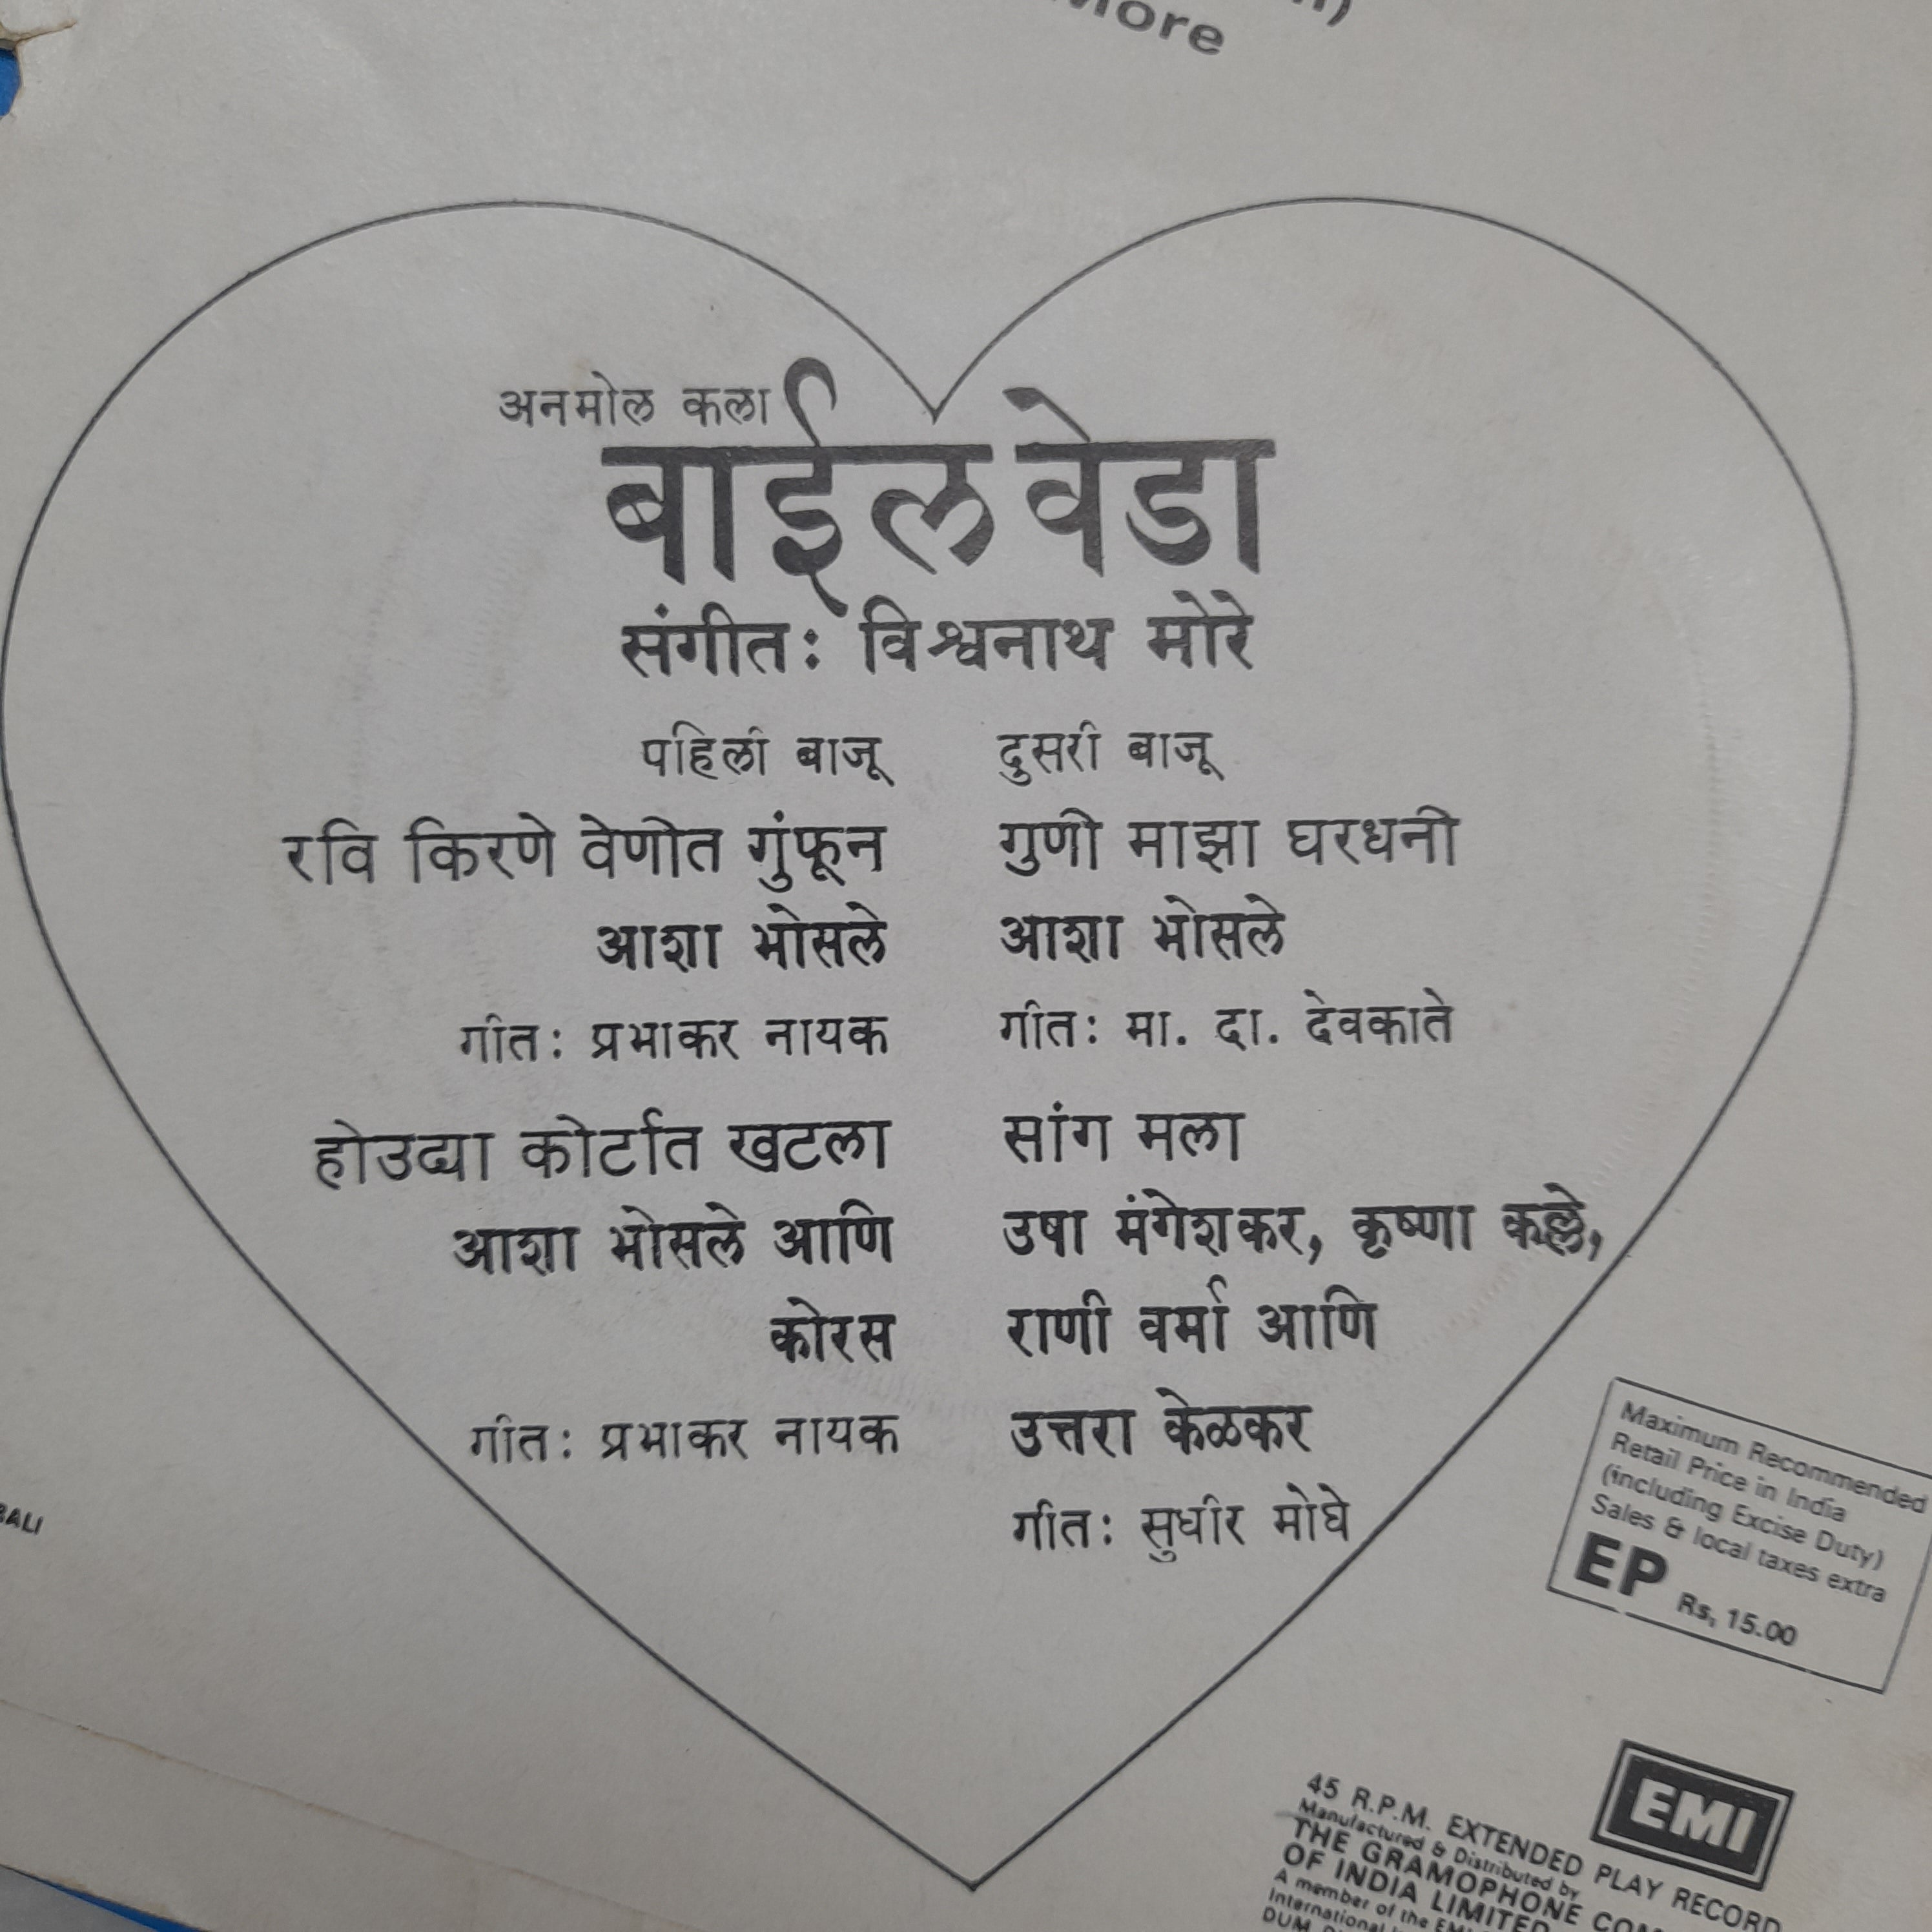 More
अनमोल कला
बाईलवेडा
संगीत: विश्वनाथ मोरे
पहिली बाजू
रवि किरणे वेणीत गुंफून
आशा भोसले
गीत: प्रभाकर नायक
होउद्या कोर्टात खटला
आशा भोसले आणि
कोरस
गीत: प्रभाकर नायक
दुसरी बाजू
गुणी माझा घरधनी
आशा भोसले
गीत: मा. दा. देवकाते
सांग मला
उषा मंगेशकर, कृष्णा कल्ले,
राणी वर्मा आणि
उत्तरा केळकर
गीत: सुधीर मोघे
Maximum Recommended
Retail Price in India
(including Excise Duty)
Sales & local taxes extra
EP Rs, 15.00
EMI
45 R.P.M. EXTENDED PLAY RECORD
Manufactured & Distributed by
THE GRAMOPHONE COM
OF INDIA LIMITED
A member of the EMI
International
DUM
BALI